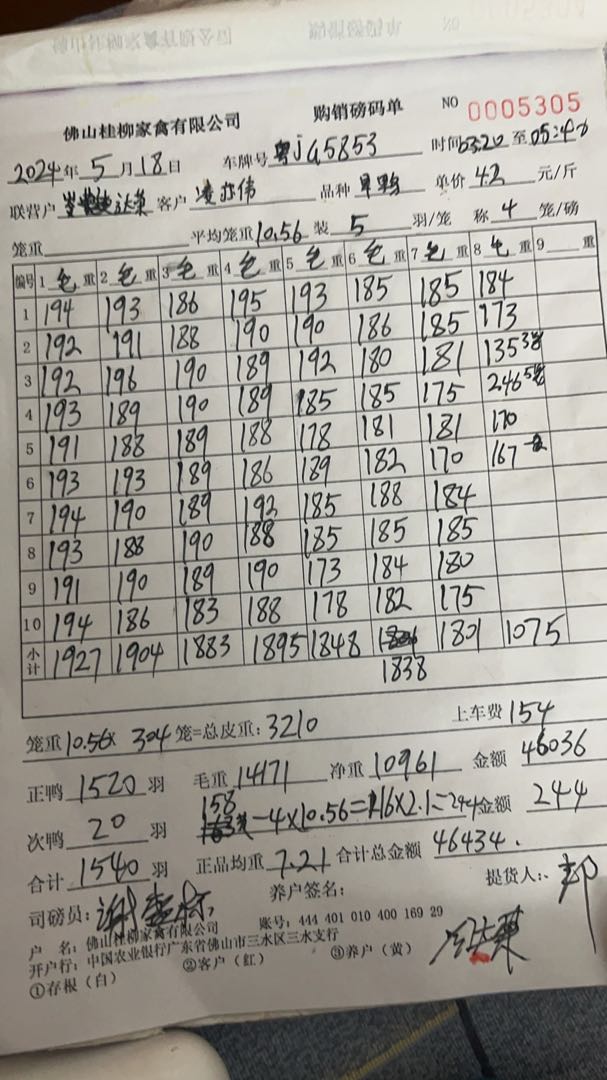 佛山桂柳家禽有限公司 购销磅码单 NO 0005305
2024年5月18日 车牌号 粤JG5853 时间03:20至05:40
联营户 达荣 客户 凌亦伟 品种 单价 4.2 元/斤
笼重 平均笼重10.56 装 5 羽/笼 称 4 笼/磅
编号 1 毛 重 2 毛 重 3 毛 重 4 毛 重 5 毛 重 6 毛 重 7 毛 重 8 毛 重 9 重
1 194 193 186 195 193 185 185 184
2 192 191 188 190 190 186 185 173
3 192 196 190 189 192 180 181 135 3笼
4 193 189 190 189 185 185 175 246 5笼
5 191 188 189 188 178 181 181 170
6 193 193 189 186 189 182 170 167
7 194 190 189 192 185 188 184
8 193 188 190 188 185 185 185
9 191 190 189 190 173 184 180
10 194 186 183 188 178 182 175
小计 1927 1904 1883 1895 1848 1801 1075
1838
笼重10.56× 304 笼=总皮重: 3210 上车费 154
正鸭 1520 羽 毛重 14171 净重 10961 金额 46036
158
次鸭 20 羽 -4×10.56=116×2.1=244 金额 244
合计 1540 羽 正品均重 7.21 合计总金额 46434.
司磅员: 养户签名: 提货人:
户 名: 佛山桂柳家禽有限公司 账号: 444 401 010 400 169 29
开户行: 中国农业银行广东省佛山市三水区三水支行
①存根（白） ②客户（红） ③养户（黄）